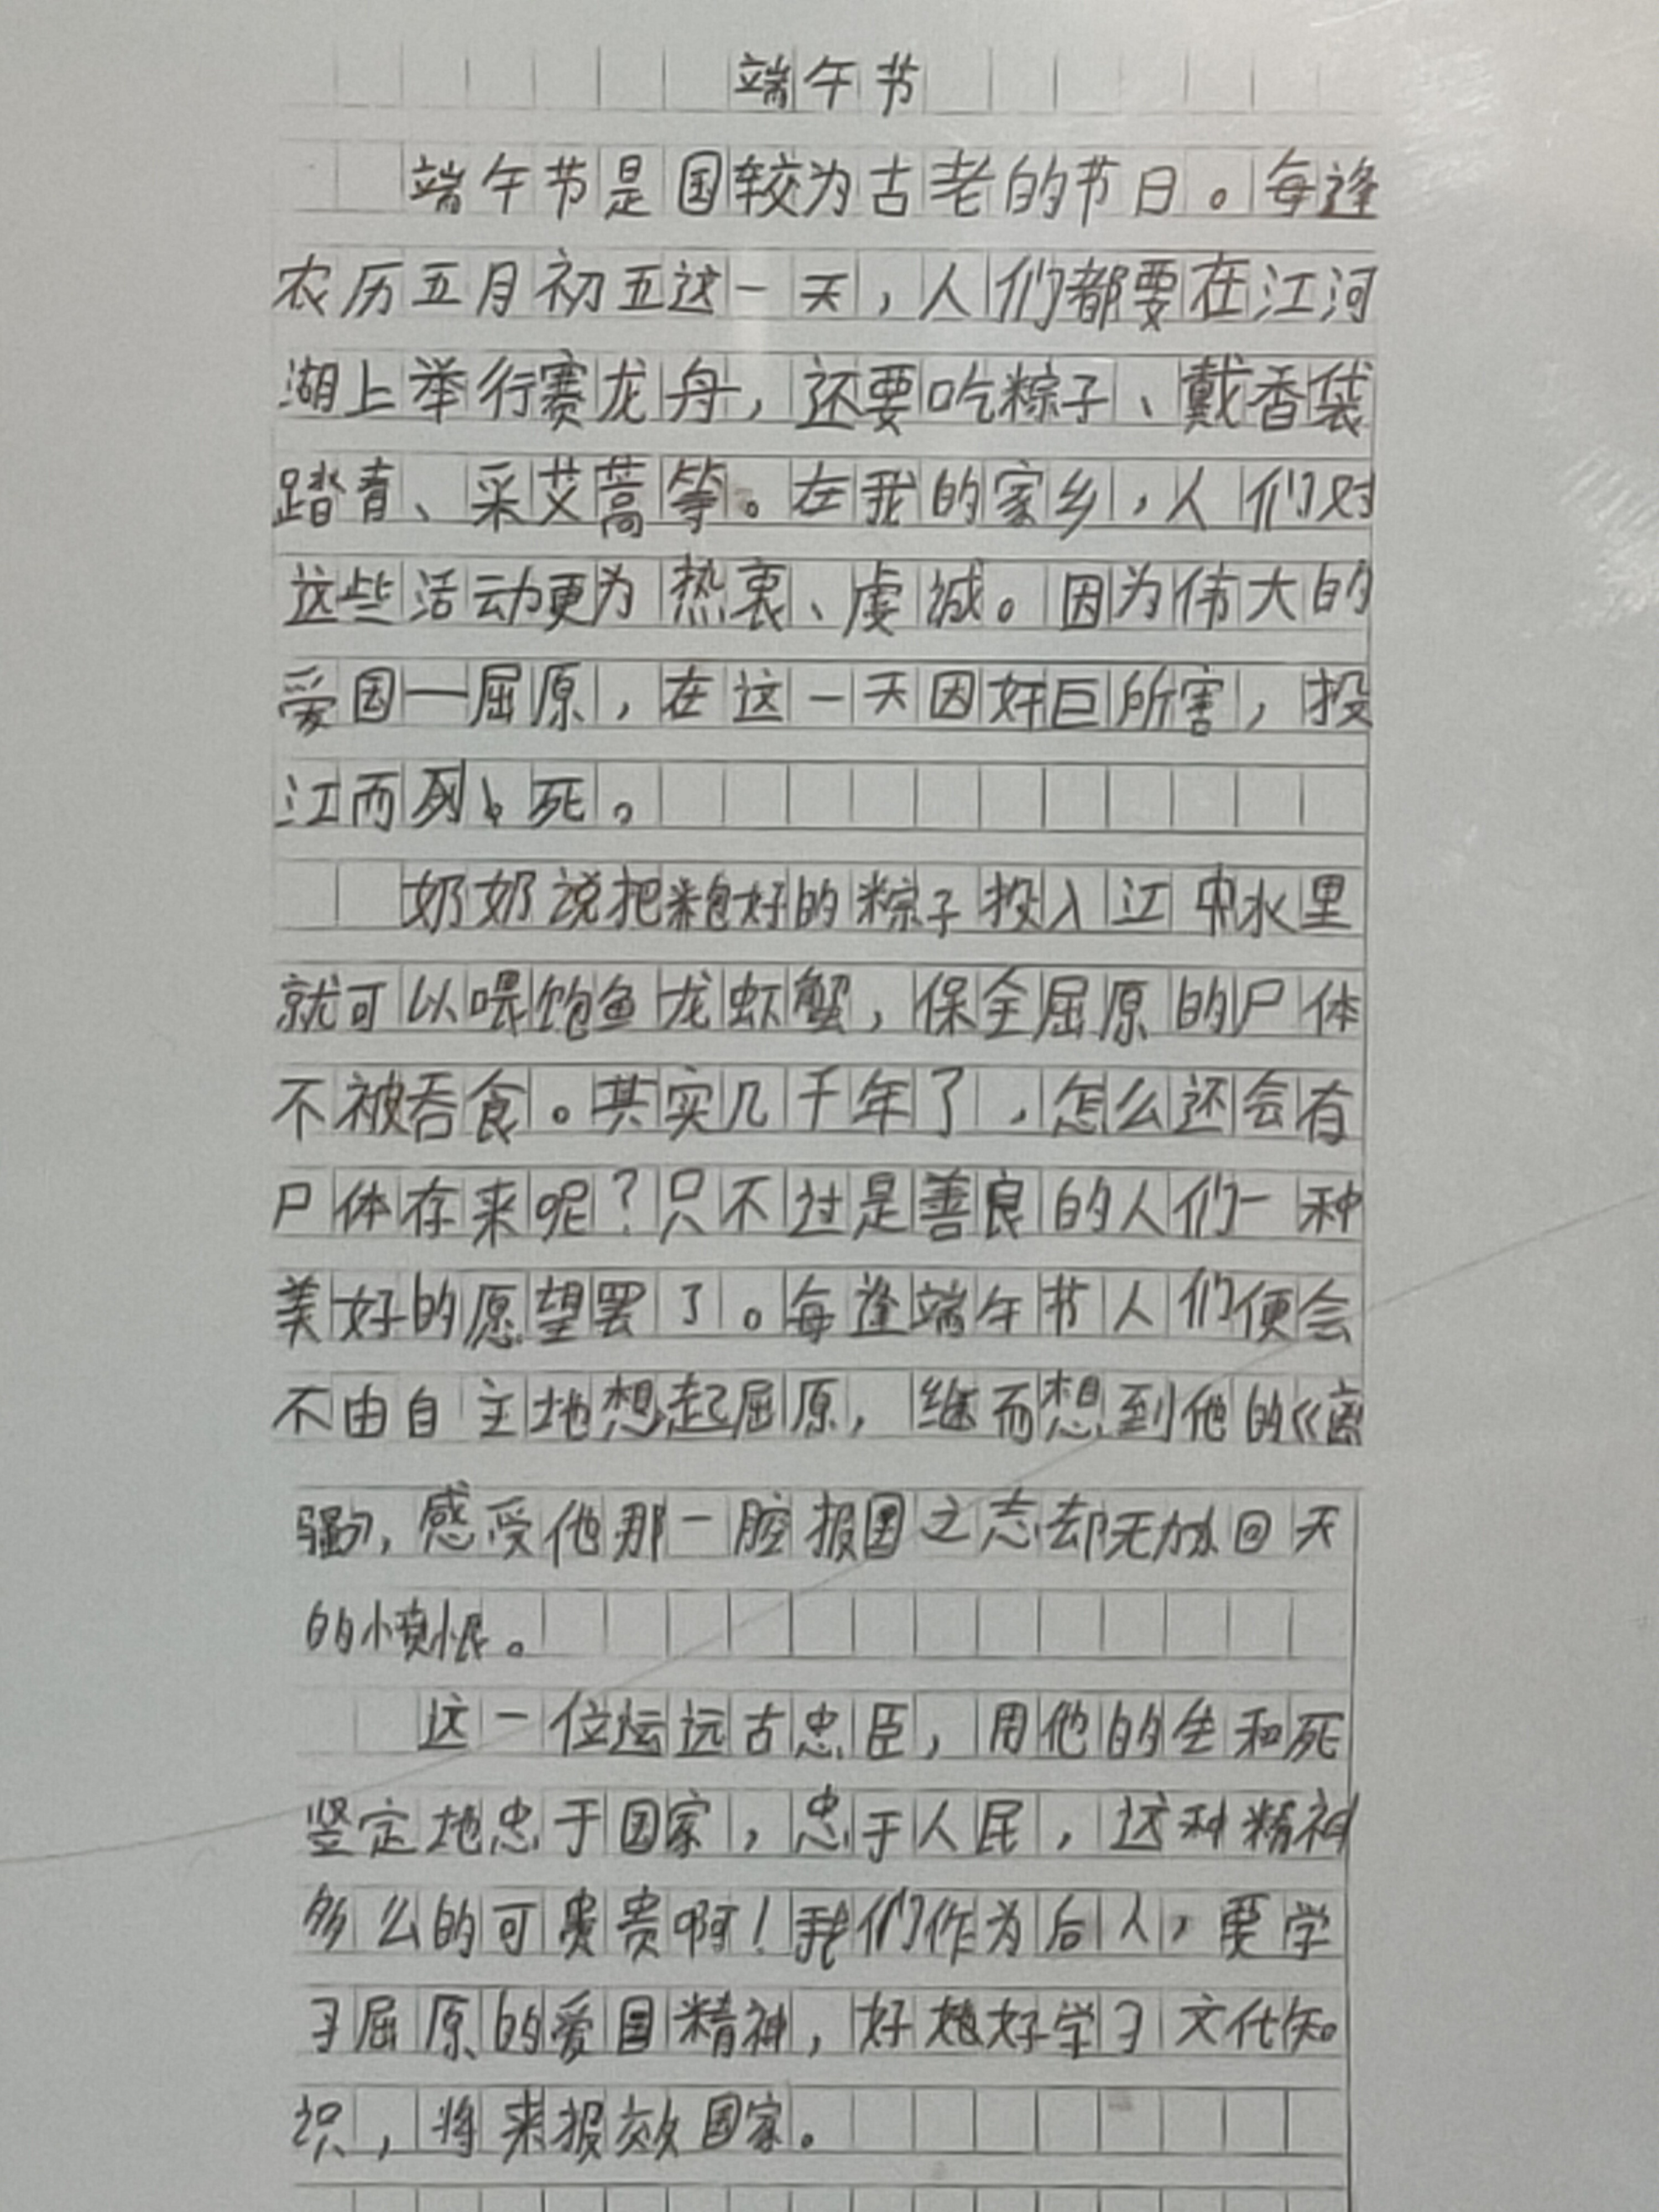 端午节
端午节是国较为古老的节日。每逢
农历五月初五这一天，人们都要在江河
湖上举行赛龙舟，还要吃粽子、戴香袋
踏青、采艾蒿等。在我的家乡，人们对
这些活动更为热衷、虔诚。因为伟大的
爱国一屈原，在这一天因奸巨所害，投
江而死。
奶奶说把好的粽子投入江水里
就可以喂饱鱼龙虾蟹，保全屈原的尸体
不被吞食。其实几千年了，怎么还会有
尸体存来呢？只不过是善良的人们一种
美好的愿望罢了。每逢端午节人们便会
不由自主地想起屈原，继而想到他的《离
骚》，感受他那一腔报国之志却无力回天
的愤恨。
这一位远古忠臣，用他的生和死
坚定地忠于国家，忠于人民，这种精神
多么的可贵啊！我们作为后人，要学
习屈原的爱国精神，好好学习文化知
识，将来报效国家。